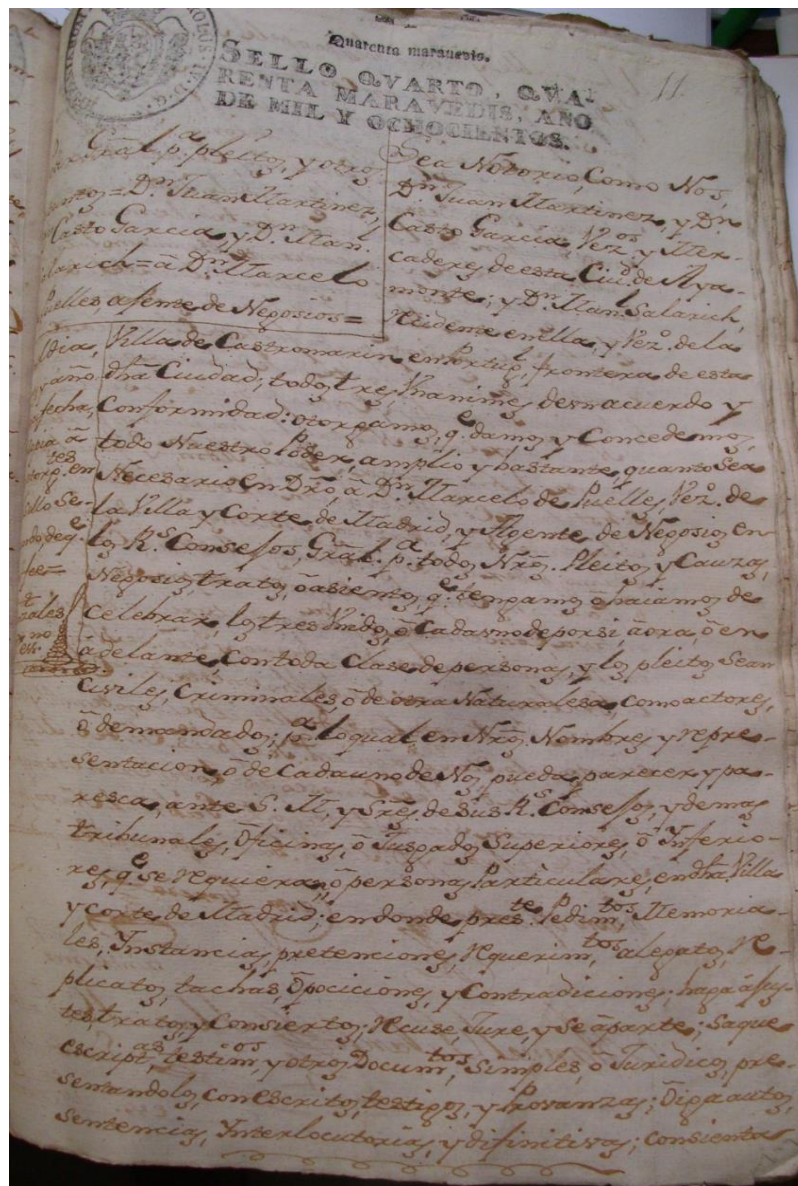 Quarenta maravedis.
SELLO QVARTO, QVA-
RENTA MARAVEDIS, AÑO
DE MIL Y OCHOCIENTOS.
11
Grãl p.ª pleitos, y otros
D.n Juan Martinez,
Casto Garcia, y D.n Man.l
Salarich = â D.n Marcelo
Puelles, agente de Negosios =
Sea Notorio, Como Nos,
D.n Juan Martinez, y D.n
Casto Garcia, Vez.os y Mer-
caderes de esta Ciu.d de Aya-
monte; y D.n Man.l Salarich,
Residente en ella, y Vez.o de la
Villa de Castromarin en Portug.l frontera de esta
dhã Ciudad; todos tres Vnanimes de vn acuerdo y
Conformidad: otorgamos, q.e damos y Concedemos,
todo Nuestro Poder, amplio y bastante, quanto Sea
Necesario en Dr̃o, â D.n Marcelo de Puelles, Vez.o de
la Villa y Corte de Madrid, y Agente de Negosios en
los R.s Consejos, Grãl p.a todos Nr̃os. Pleitos y Cauzas,
Negosios, tratos, ô asientos, q.e tengamos ô haiamos de
Celebrar, los tres Vnidos, ô Cada vno de por si, âora, ô en
âdelante, Con toda Clase de personas, y los pleitos Sean
Civiles, Criminales, ô de otra Naturalesa, como actores,
ô demandados; p.a lo qual en Nr̃os Nombres y repre-
sentacion, ô de Cada uno de Nos, pueda parecer y pa-
resca, ante S. M., y Sr̃es de sus R.s Consejos, y demas
tribunales, Oficinas, ô Jusgados Superiores, ô Inferio-
res, q.e se Requiera, ô personas Particulares, en dhã Villa
y Corte de Madrid; en donde pres.te Pedim.tos, Memoria-
les, Instancias, pretenciones, Requerim.tos, alegatos, Re-
plicatos, tachas, Opociciones, y Contradiciones; haga âjus-
tes, tratos, y Consiertos; Recuse, Jure, y Se âparte; Saque
escript.as, testim.os, y otros Docum.tos, Simples, ô Juridicos, pre-
sentandolos, con escritos, testigos, y Provanzas; Oiga autos,
sentencias, Interlocutorias, y difinitivas; consienta